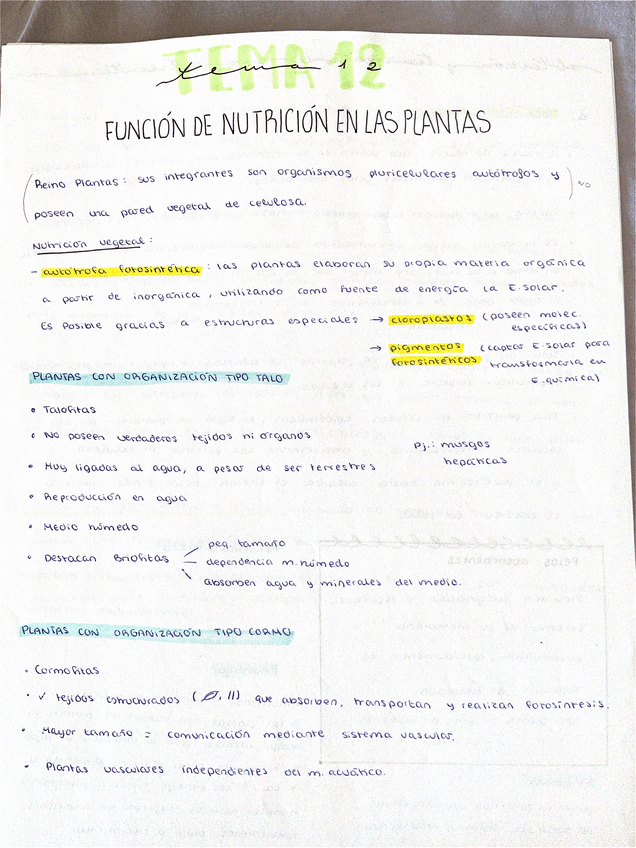 TEMA 12
tema 12
FUNCIÓN DE NUTRICIÓN EN LAS PLANTAS
(Reino Plantas: sus integrantes son organismos pluricelulares autótrofos y
poseen una pared vegetal de celulosa.) NO
Nutrición vegetal:
- autótrofa fotosintética: las plantas elaboran su propia materia orgánica
a partir de inorgánica, utilizando como fuente de energía la E.solar.
Es posible gracias a estructuras especiales → cloroplastos (poseen molec.
específicas)
→ pigmentos (captar E.solar para
fotosintéticos transformarla en
E.química)
PLANTAS CON ORGANIZACIÓN TIPO TALO
• Talofitas
• No poseen verdaderos tejidos ni órganos
• Muy ligadas al agua, a pesar de ser terrestres
Pj.: musgos
hepáticas
• Reproducción en agua
• Medio húmedo
• Destacan Briofitas
peq. tamaño
dependencia m. húmedo
absorben agua y minerales del medio.
PLANTAS CON ORGANIZACIÓN TIPO CORMO
• Cormofitas
• ✓ tejidos estructurados ( , ) que absorben, transportan y realizan fotosíntesis.
• Mayor tamaño = comunicación mediante sistema vascular.
• Plantas vasculares independientes del m. acuático.